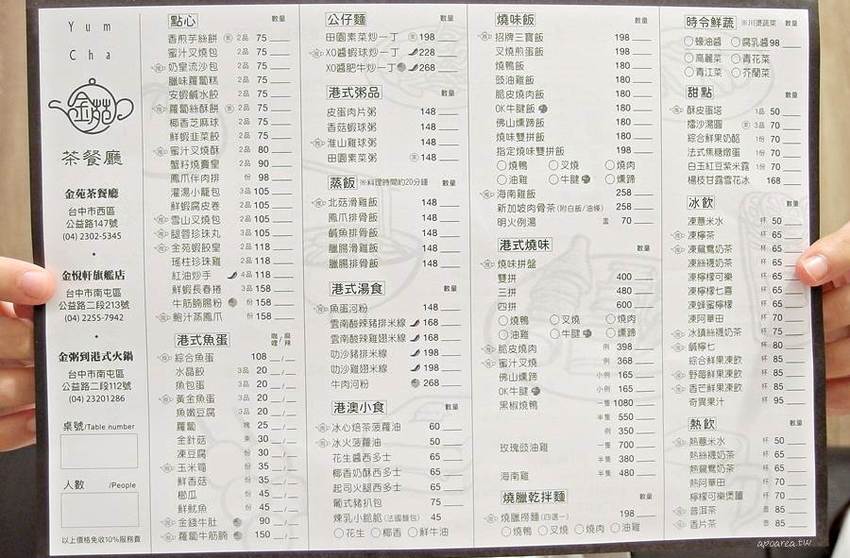 Yum
Cha
金苑
茶餐廳
金苑茶餐廳
台中市西區
公益路147號
(04) 2302-5345
金悅軒旗艦店
台中市南屯區
公益路二段213號
(04) 2255-7942
金粥到港式火鍋
台中市南屯區
公益路二段112號
(04) 23201286
桌號/Table number
人數 /People
以上價格免收10%服務費
點心 數量
香煎芋絲餅 2品 75
蜜汁叉燒包 2品 75
奶皇流沙包 2品 75
臘味蘿蔔糕 2品 75
安蝦鹹水餃 2品 75
蘿蔔絲酥餅 2品 75
椰香芝麻球 2品 75
鮮蝦韭菜餃 2品 75
蜜汁叉燒酥 2品 80
蟹籽燒賣皇 2品 90
鳳爪伴肉排 份 98
灌湯小籠包 3品 105
鮮蝦腐皮卷 2品 105
雪山叉燒包 2品 105
腿蓉珍珠丸 3品 105
金苑蝦餃皇 4品 118
瑤柱珍珠雞 2品 118
紅油炒手 4品 118
鮮蝦長春捲 3品 158
牛筋腩腸粉 份 158
鮑汁蒸鳳爪 份 158
港式魚蛋 咖哩 麻辣
綜合魚蛋 108
水晶餃 3品 20
魚包蛋 3品 20
黃金魚蛋 3品 20
魚嫩豆腐 3品 20
蘿蔔 塊 25
金針菇 束 30
凍豆腐 份 30
玉米筍 份 35
鮮香菇 份 35
櫛瓜 份 45
鮮魷魚 份 45
金錢牛肚 份 90
蘿蔔牛筋腩 份 150
公仔麵 數量
田園素菜炒一丁 198
XO醬蝦球炒一丁 228
XO醬肥牛炒一丁 268
港式粥品 數量
皮蛋肉片粥 148
香菇蝦球粥 148
淮山雞球粥 148
田園素菜粥 148
蒸飯 ※料理時間約20分鐘 數量
北菇滑雞飯 148
鳳爪排骨飯 148
鹹魚排骨飯 148
臘腸滑雞飯 148
臘腸排骨飯 148
港式湯食 數量
魚蛋河粉 148
雲南酸辣豬排米線 168
雲南酸辣雞翅米線 168
叻沙豬排米線 168
叻沙雞翅米線 168
牛肉河粉 268
港澳小食 數量
冰心焙茶菠蘿油 60
冰火菠蘿油 50
花生醬西多士 65
椰香奶酥西多士 65
起司火腿西多士 65
葡式豬扒包 75
煉乳小脆脆(法國麵包) 45
○花生 ○椰香 ○鮮牛油
燒味飯 數量
招牌三寶飯 198
叉燒煎蛋飯 198
燒鴨飯 180
豉油雞飯 180
脆皮燒肉飯 180
OK牛腱飯 180
佛山燻蹄飯 180
燒味雙拼飯 180
指定燒味雙拼飯 190
○燒鴨 ○叉燒 ○燒肉
○油雞 ○牛腱 ○燻蹄
海南雞飯 258
新加坡肉骨茶(附白飯/油條) 258
明火例湯 盅 70
港式燒味 數量
燒味拼盤
雙拼 400
三拼 480
四拼 600
○燒鴨 ○叉燒 ○燒肉
○油雞 ○牛腱 ○燻蹄
脆皮燒肉 例 398
蜜汁叉燒 例 368
佛山燻蹄 小例 165
OK牛腱 小例 165
黑椒燒鴨 一隻 1080
半隻 550
例 350
玫瑰豉油雞 一隻 700
半隻 380
海南雞 半隻 480
燒臘乾拌麵 數量
燒臘撈麵(四選一) 198
○燒鴨 ○叉燒 ○燒肉 ○油雞
時令鮮蔬 ※川燙蔬菜 數量
○蠔油醬 ○腐乳醬 98
○高麗菜 ○青花菜
○青江菜 ○芥蘭菜
甜點 數量
酥皮蛋塔 1品 50
擂沙湯圓 3品 70
綜合鮮果奶酪 1杯 70
法式焦糖燉蛋 1杯 70
白玉紅豆紫米露 1杯 70
楊枝甘露雪花冰 168
冰飲 數量
凍薏米水 杯 50
凍檸茶 杯 65
凍鴛鴦奶茶 杯 65
凍絲襪奶茶 杯 65
凍檸檬可樂 杯 65
凍檸檬七喜 杯 65
凍蜂蜜檸檬 杯 65
凍阿華田 杯 70
冰鎮絲襪奶茶 杯 75
鹹檸七 杯 80
綜合鮮果凍飲 杯 85
野莓鮮果凍飲 杯 85
香芒鮮果凍飲 杯 85
奇異果汁 杯 95
熱飲 數量
熱薏米水 杯
熱絲襪奶茶 杯
熱鴛鴦奶茶 杯
熱阿華田 杯
檸檬可樂煲薑 杯
普洱茶 壺
香片茶 壺
apoarea.tw